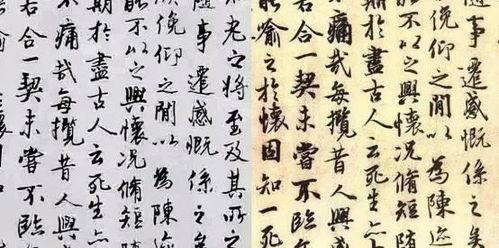 隨事遷感慨係之矣
俛仰之閒以為陳迹
不以之興懷況脩短隨
期於盡古人云死生亦
痛哉每攬昔人興感
若合一契未嘗不臨
能喻之於懷固知一死
老之將至及其所之
隨事遷感慨係之矣
俛仰之閒以為陳迹
能不以之興懷況脩短隨
期於盡古人云死生亦
痛哉每攬昔人興
若合一契未嘗不臨